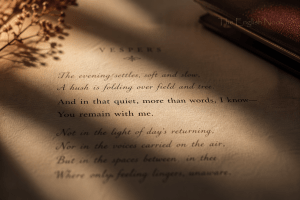 VESPERS
The evening settles, soft and slow,
A hush is folding over field and tree
And in that quiet, more than words, I know—
You remain with me.
Not in the light of day's returning,
Not in the voices carried on the air,
But in the spaces between in thee
Where only feeling lingers, unaware.